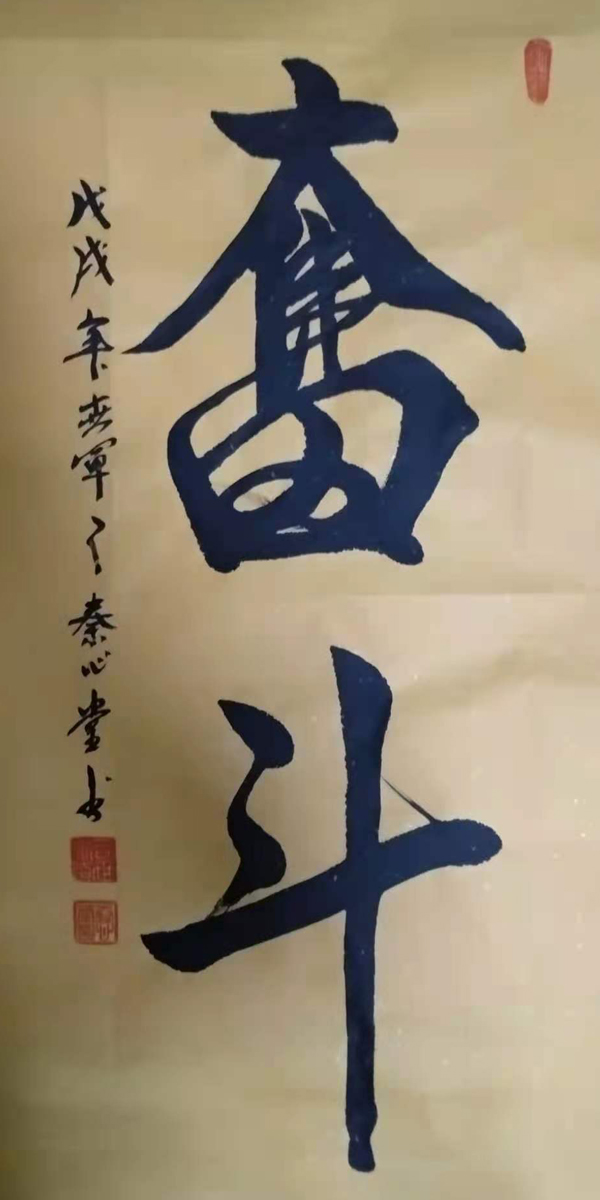 奮斗
戊戌年 軍 秦心堂书